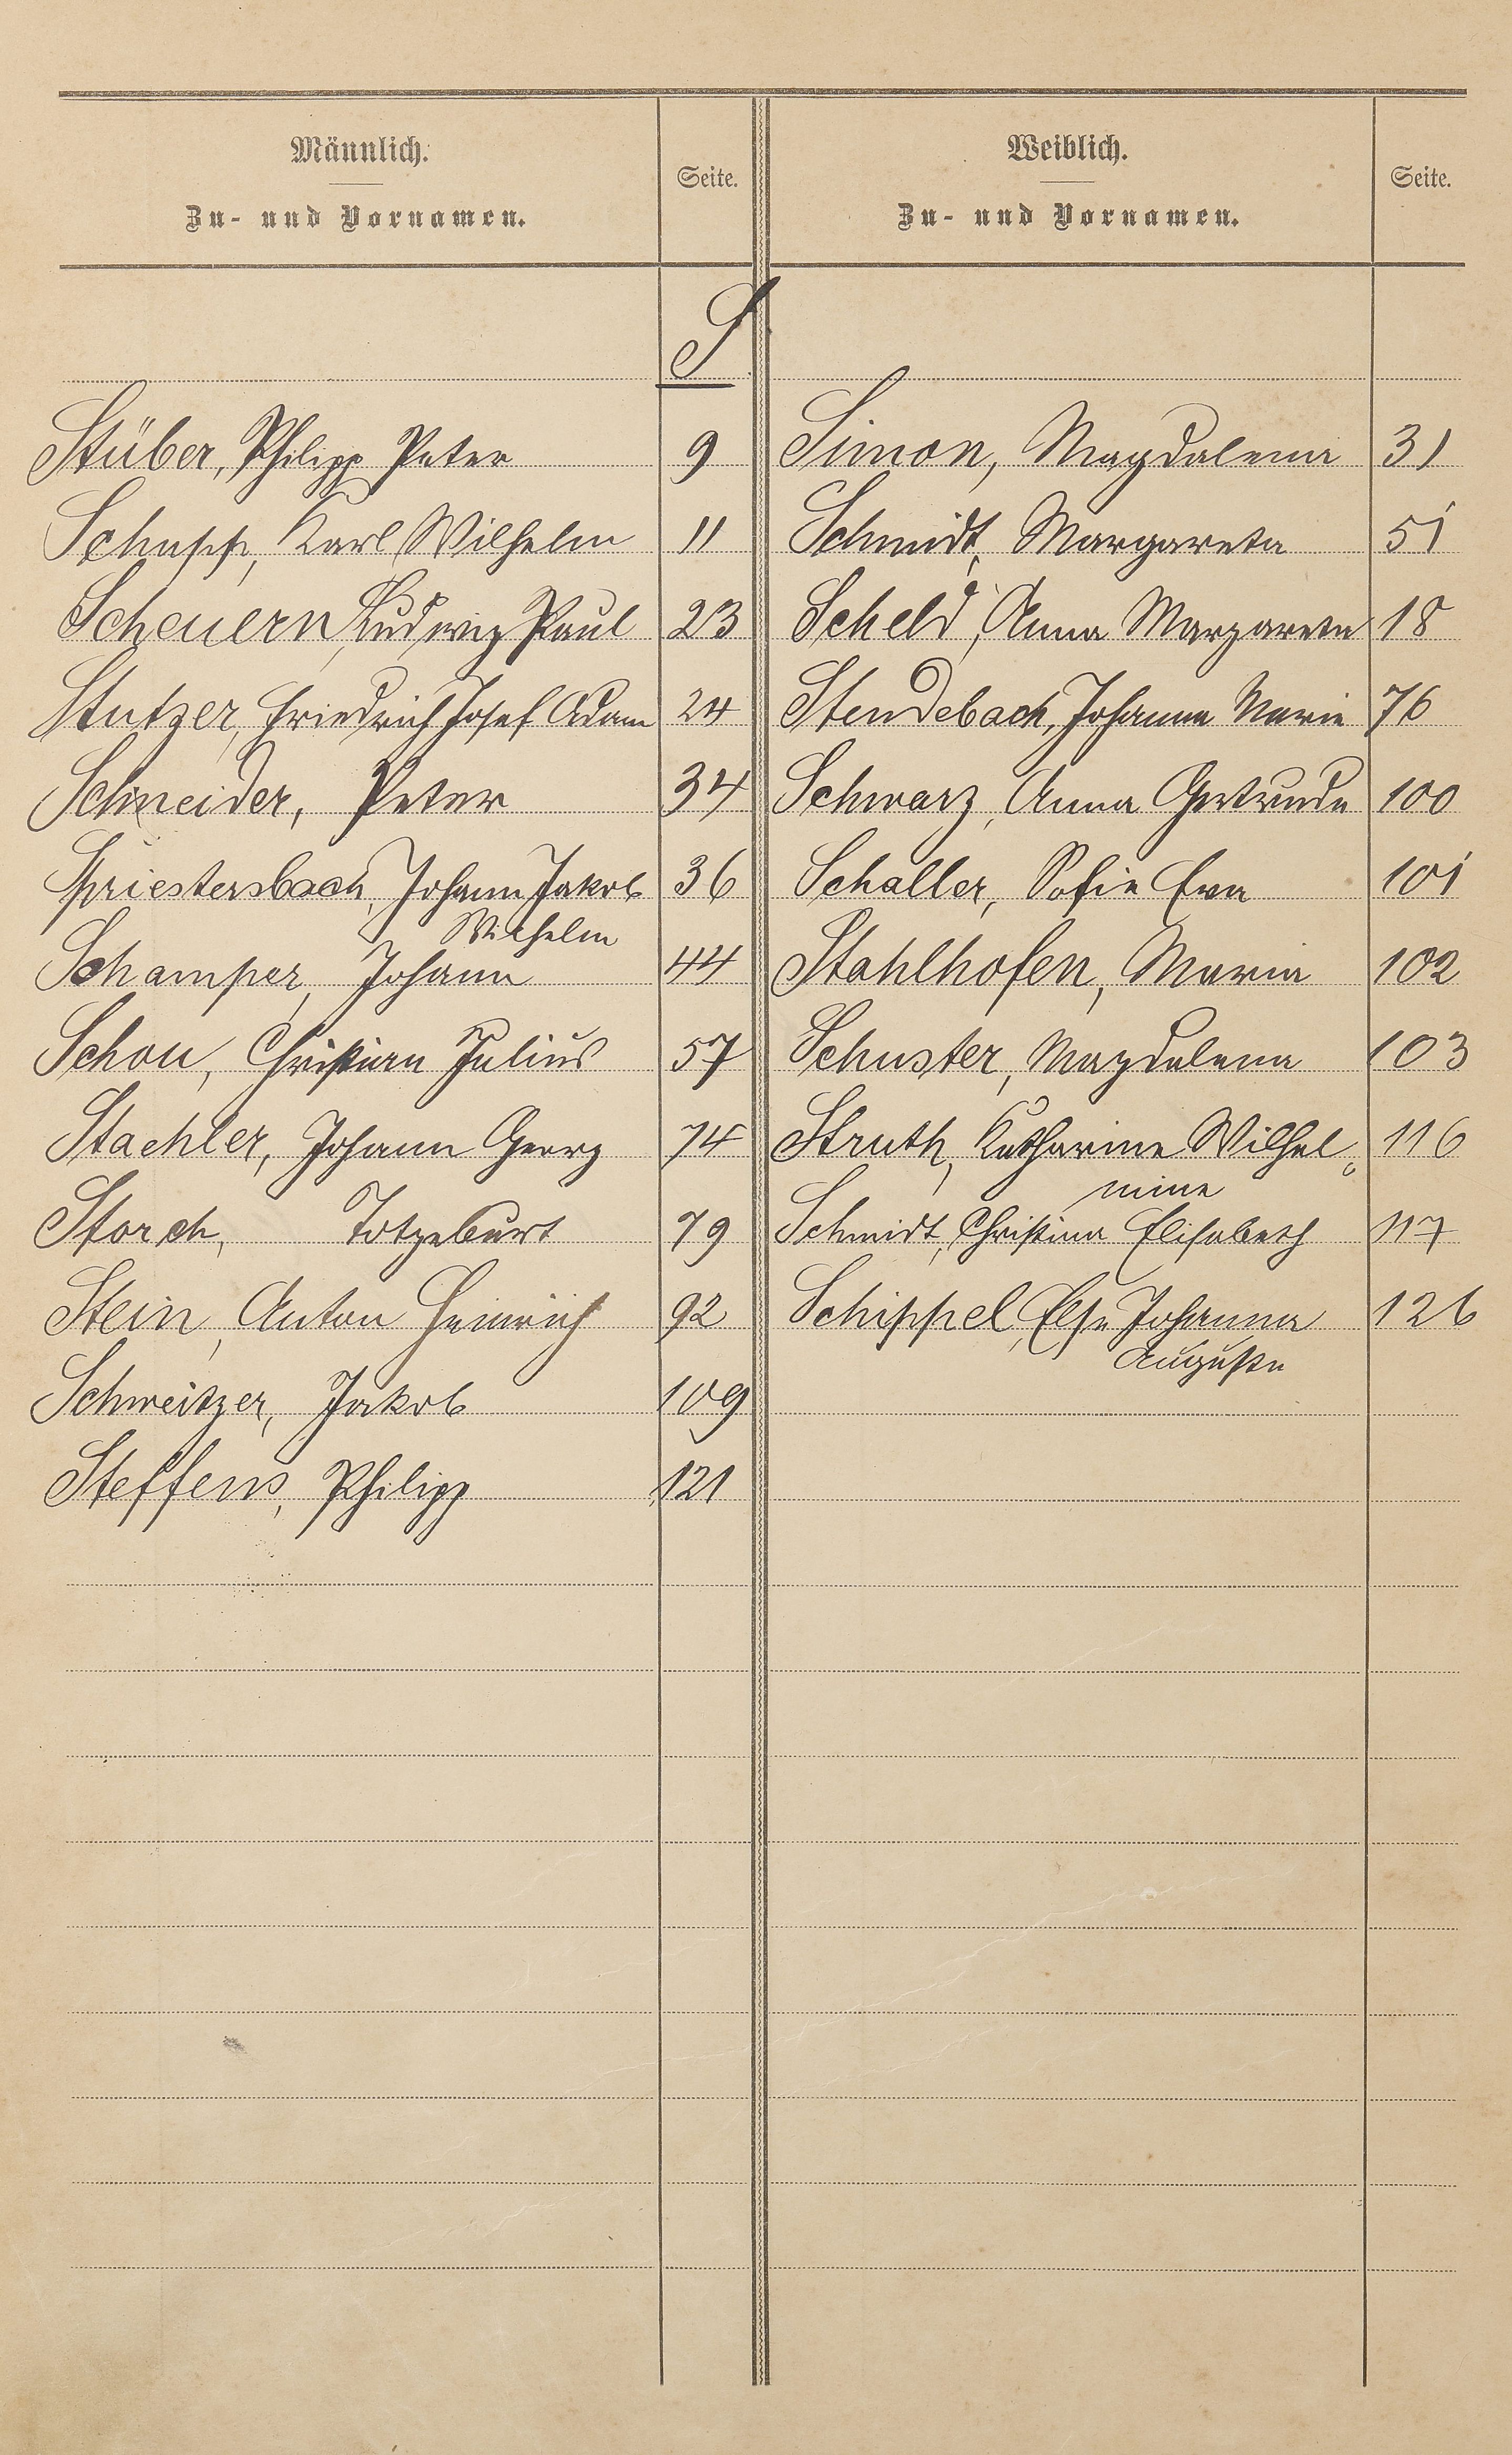 Männlich.
Zu- und Vornamen.
Seite.
Weiblich.
Zu- und Vornamen.
Seite.
S
Stüber, Philipp Peter 9
Schupp, Karl Wilhelm 11
Scheuern, Ludwig Paul 23
Stutzer, Friedrich Josef Adam 24
Schneider, Peter 34
Spriestersbach, Johann Jakob 36
Wilhelm
Schamper, Johann 44
Schon, Christian Julius 57
Staehler, Johann Georg 74
Storch, Totgeburt 79
Stein, Anton Heinrich 92
Schweitzer, Jakob 109
Steffens, Philipp 121
Simon, Magdalena 31
Schmidt, Margareta 51
Scheld, Anna Margareta 18
Stendebach, Johanna Maria 76
Schwarz, Anna Gertrude 100
Schaller, Sofie Eva 101
Stahlhofen, Maria 102
Schuster, Magdalena 103
Struth, Katharine Wilhel„ 116
mine
Schmidt, Christina Elisabeth 117
Schippel, Else Johanna 126
Auguste